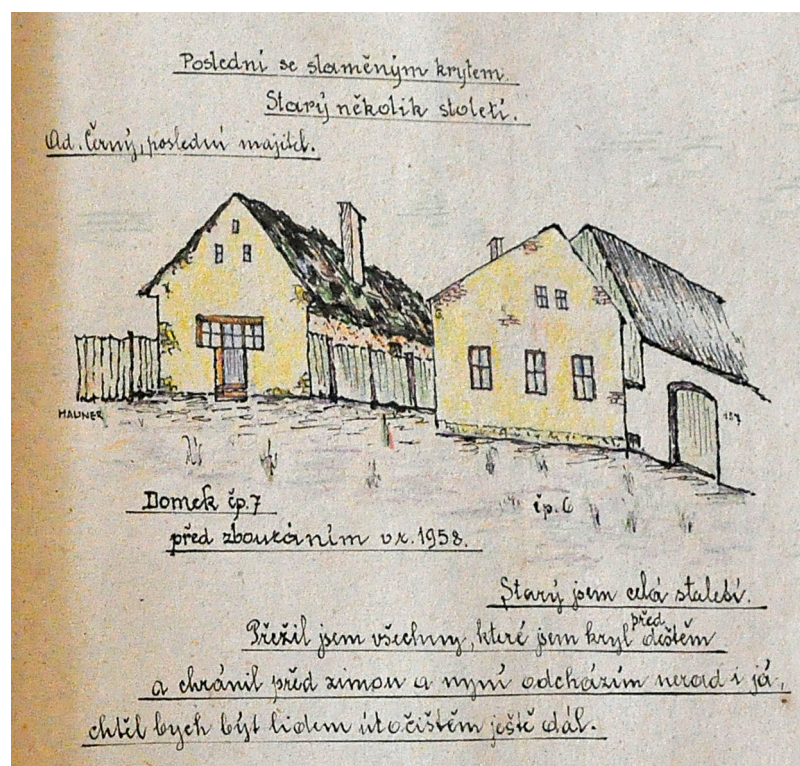 Poslední se slaměným krytem.
Starý několik století.
Ad. Černý, poslední majitel.
HAUNER
187
Domek čp. 7
čp. 6
před zbouráním v r. 1958.
Starý jsem celá staletí.
Přežil jsem všechny, které jsem kryl před deštěm
a chránil před zimou a nyní odcházím nerad i já,
chtěl bych být lidem útočištěm ještě dál.